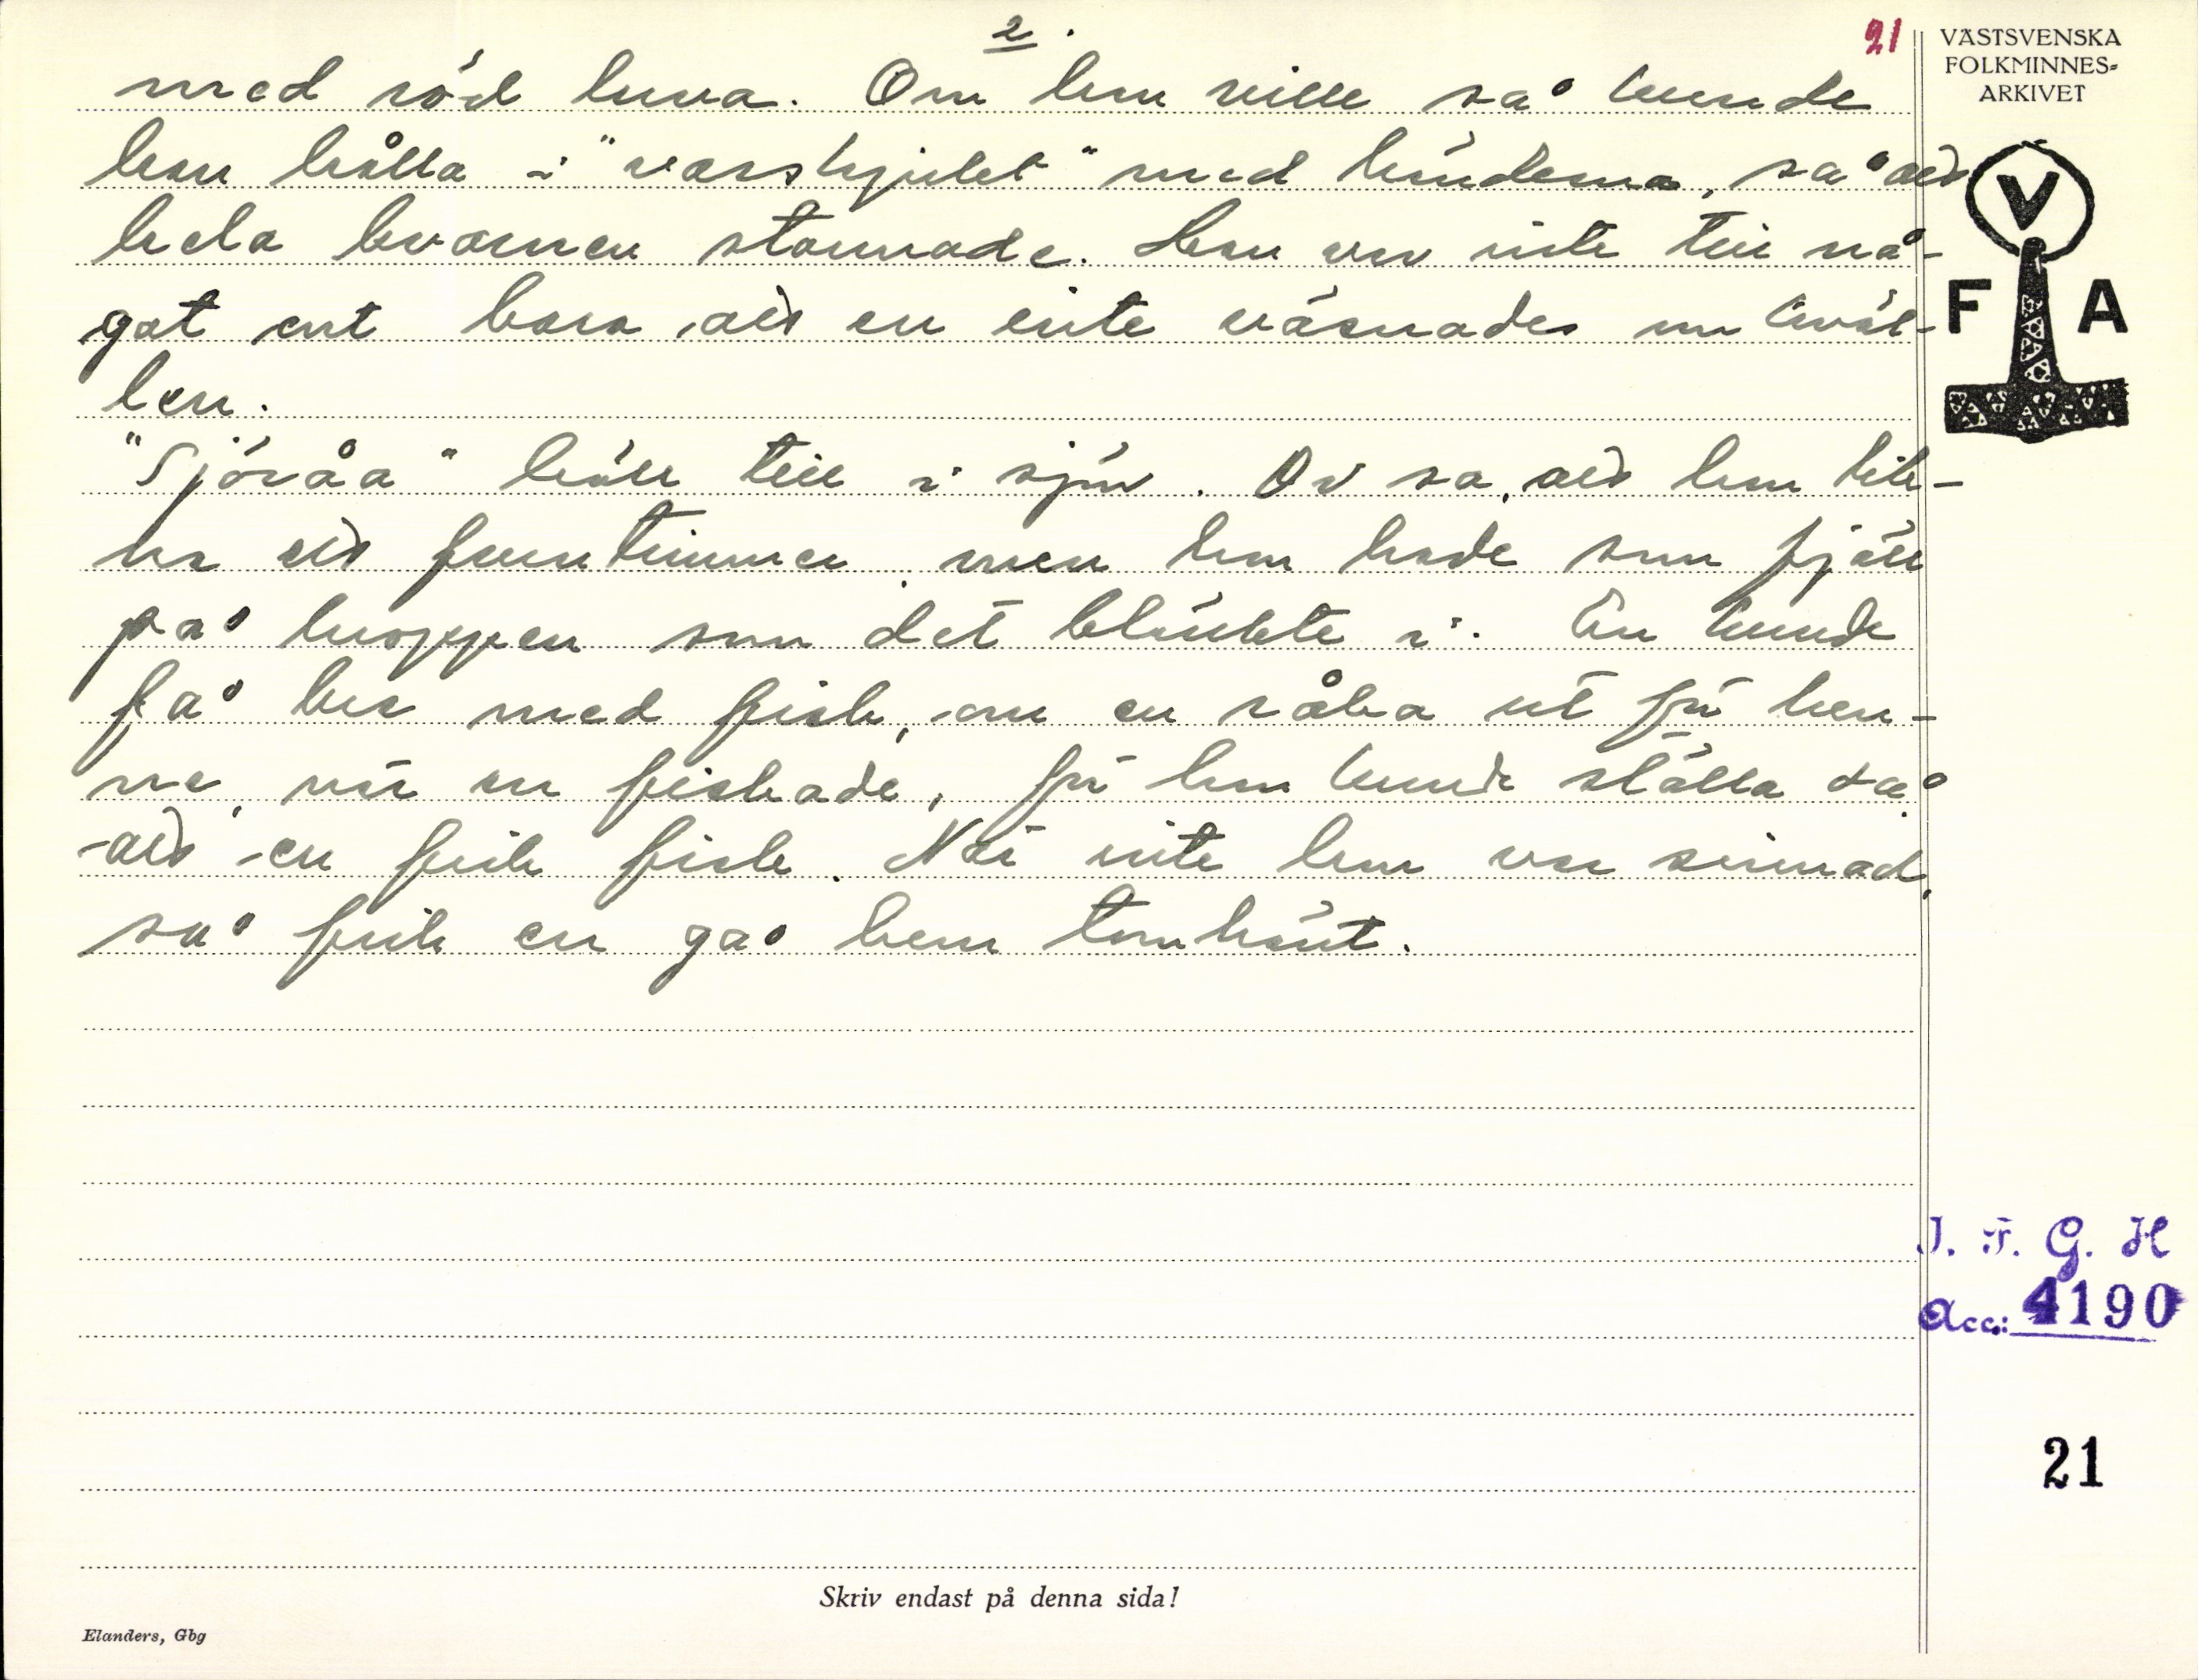 2.
21
VÄSTSVENSKA
FOLKMINNES-
ARKIVET
med röd luva. Om han ville så kunde
han hålla i "vasskjulet" med händerna, så att
hela kvarnen stannade. Han var inte till nå-
got ont bara att en inte väsnades om kväl-
len.
"Sjöråa" höll till i sjön. De sa, att hon likn-
na ett fruntimmer men hon hade som fjäll
på kroppen som det blänkte i. En kunde
få be med fisk, om en råka ut för hen-
ne, när en fiskade, för hon kunde ställa så
att en fick fisk. När inte hon var sinnad,
så fick en gå hem tomhänt.
V
F A
I. F. G. H
Acc: 4190
21
Skriv endast på denna sida!
Elanders, Gbg